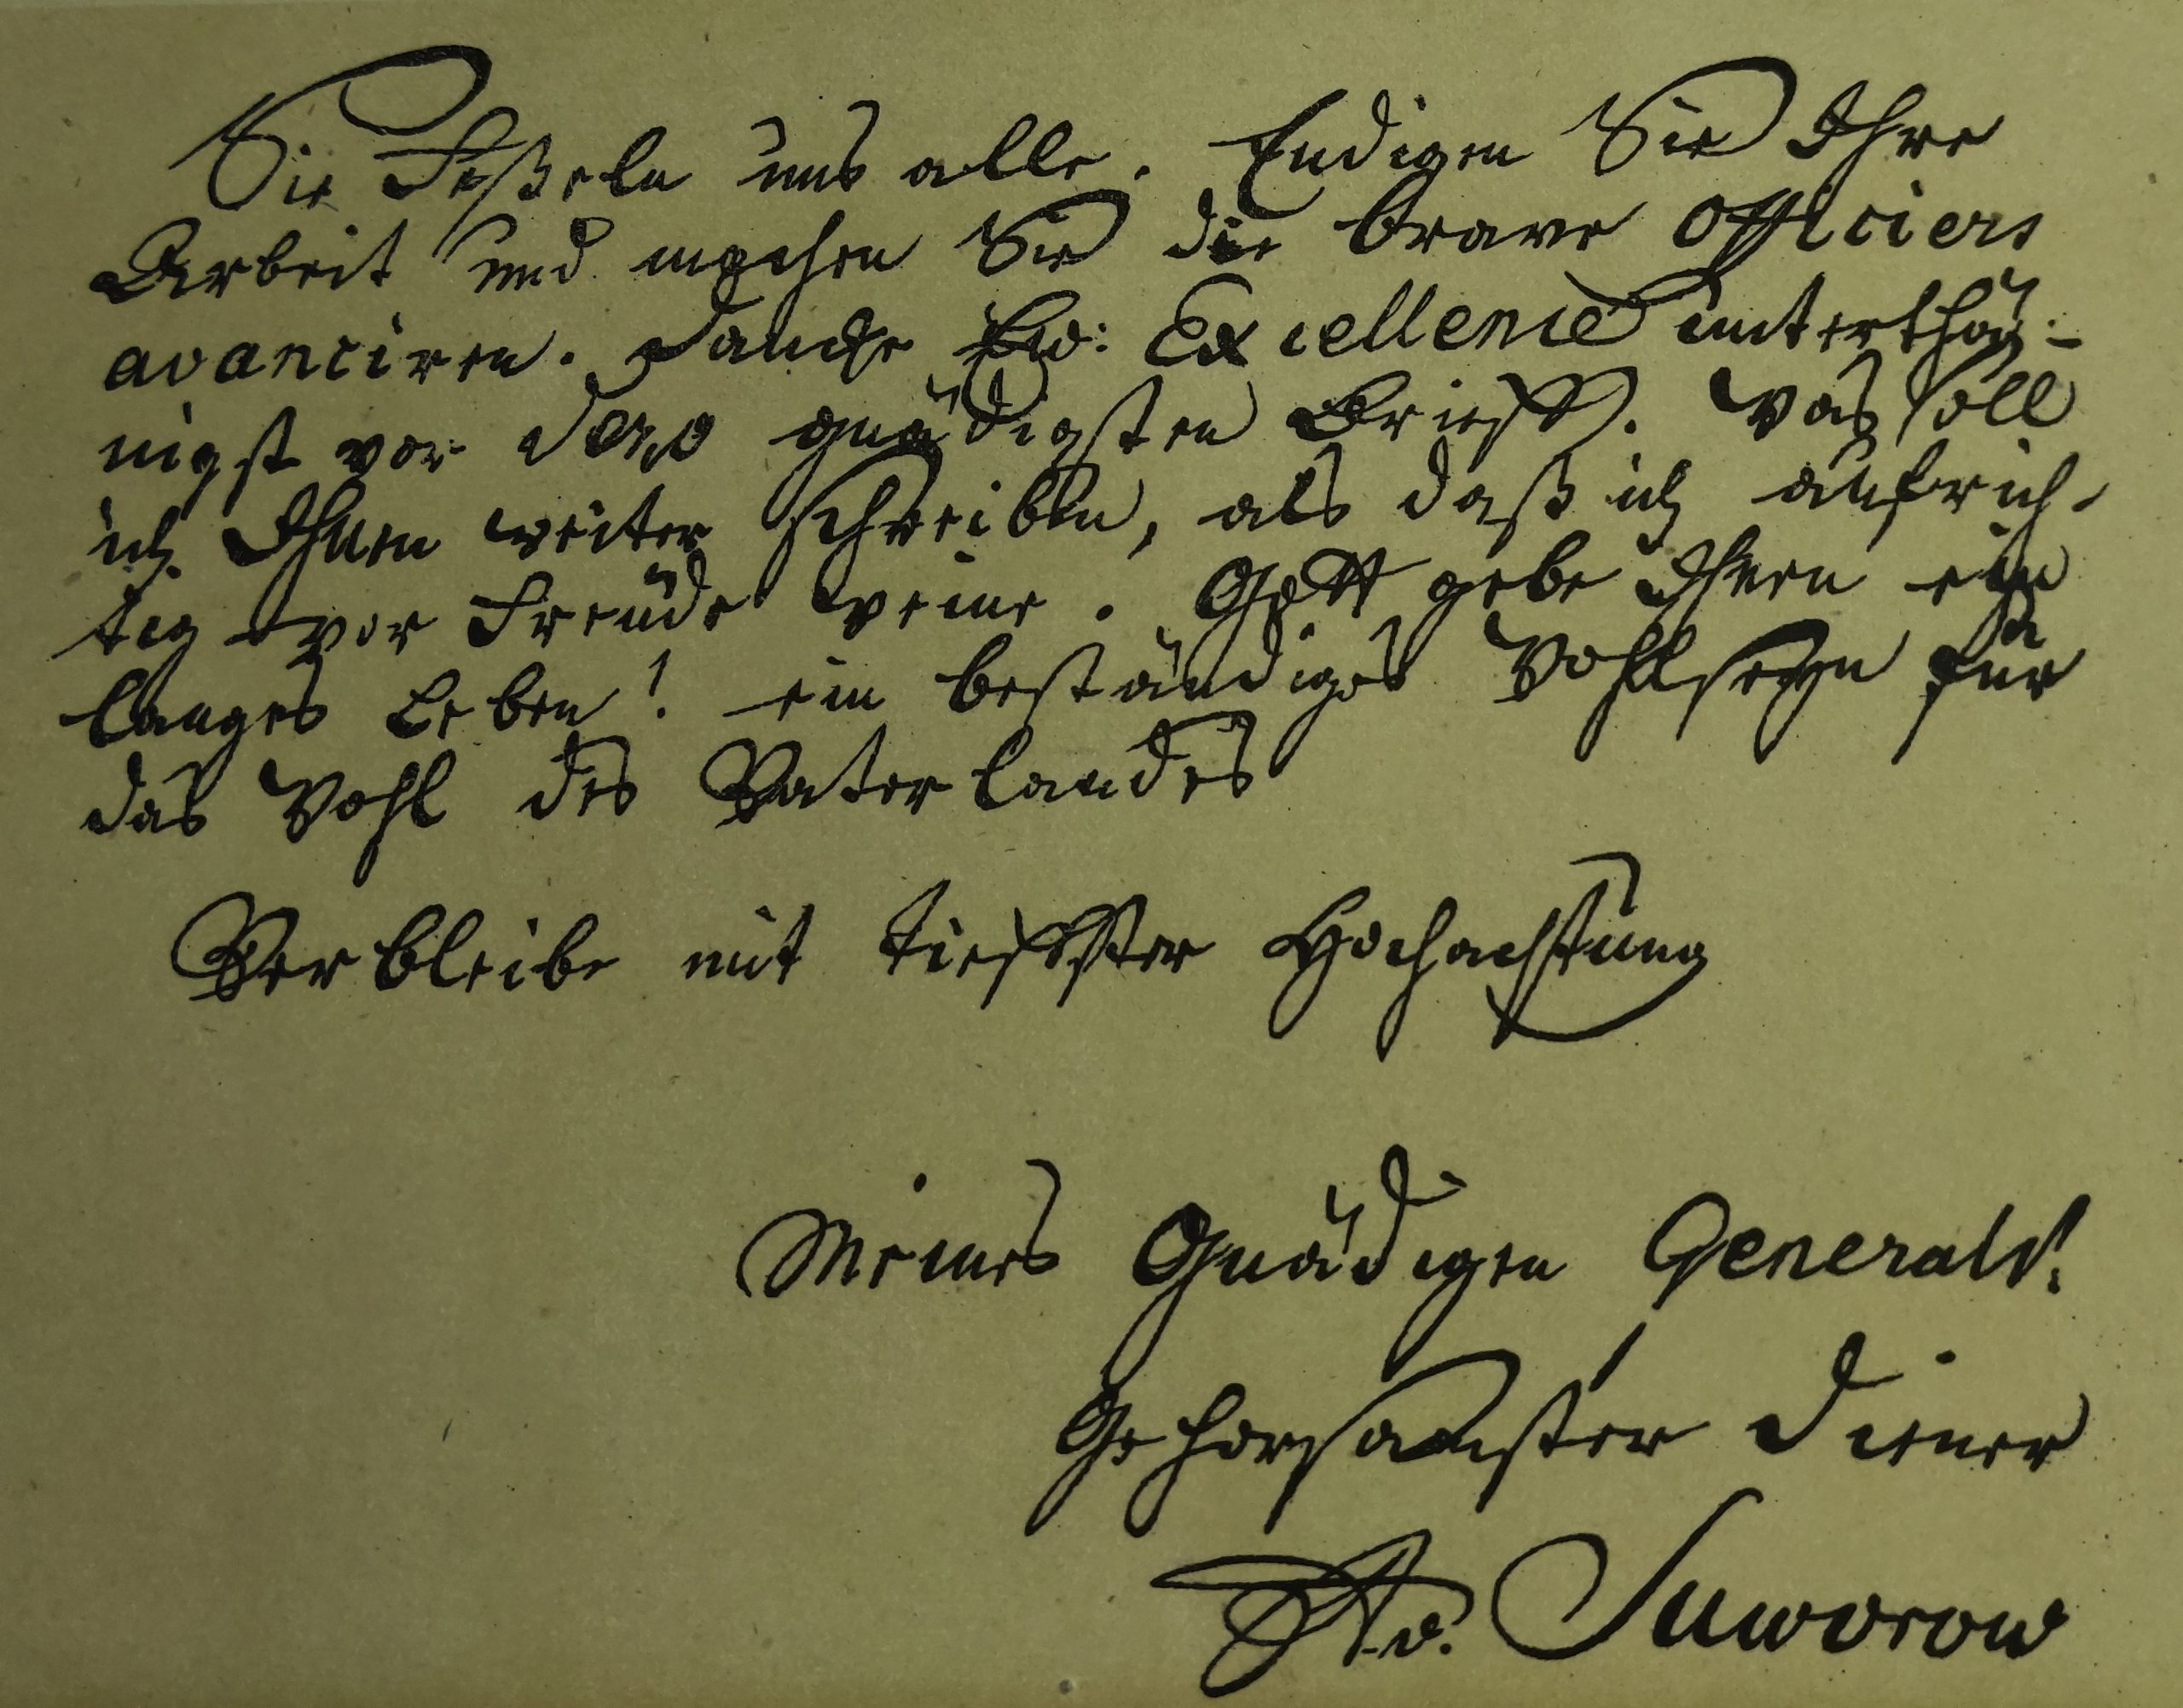 Sie Feßeln uns alle. Endigen Sie Ihre
Arbeit und machen Sie die brave Officiers
avanciren. Dancke Ew: Excellence unterthä-
nigst vor Dero gnädigsten Brieff. Was soll
ich Ihnen weiter schreiben, als daß ich aufrich-
tig vor Freude weine. Gott gebe Ihnen ein
langes Leben! ein beständiges Wohlseyn für
das Wohl des Vaterlandes
Verbleibe mit tieffster Hochachtung
Meines Gnädigen Generals!
Gehorsamster Diener
Suworow